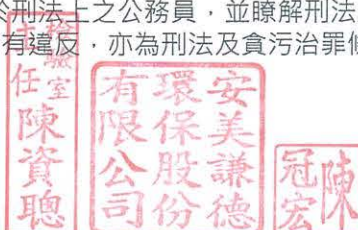 於刑法上之公務員，並瞭解刑法
有違反，亦為刑法及貪污治罪
檢驗室
主任
陳資聰
安美謙德
環保股份
有限公司
陳
冠宏